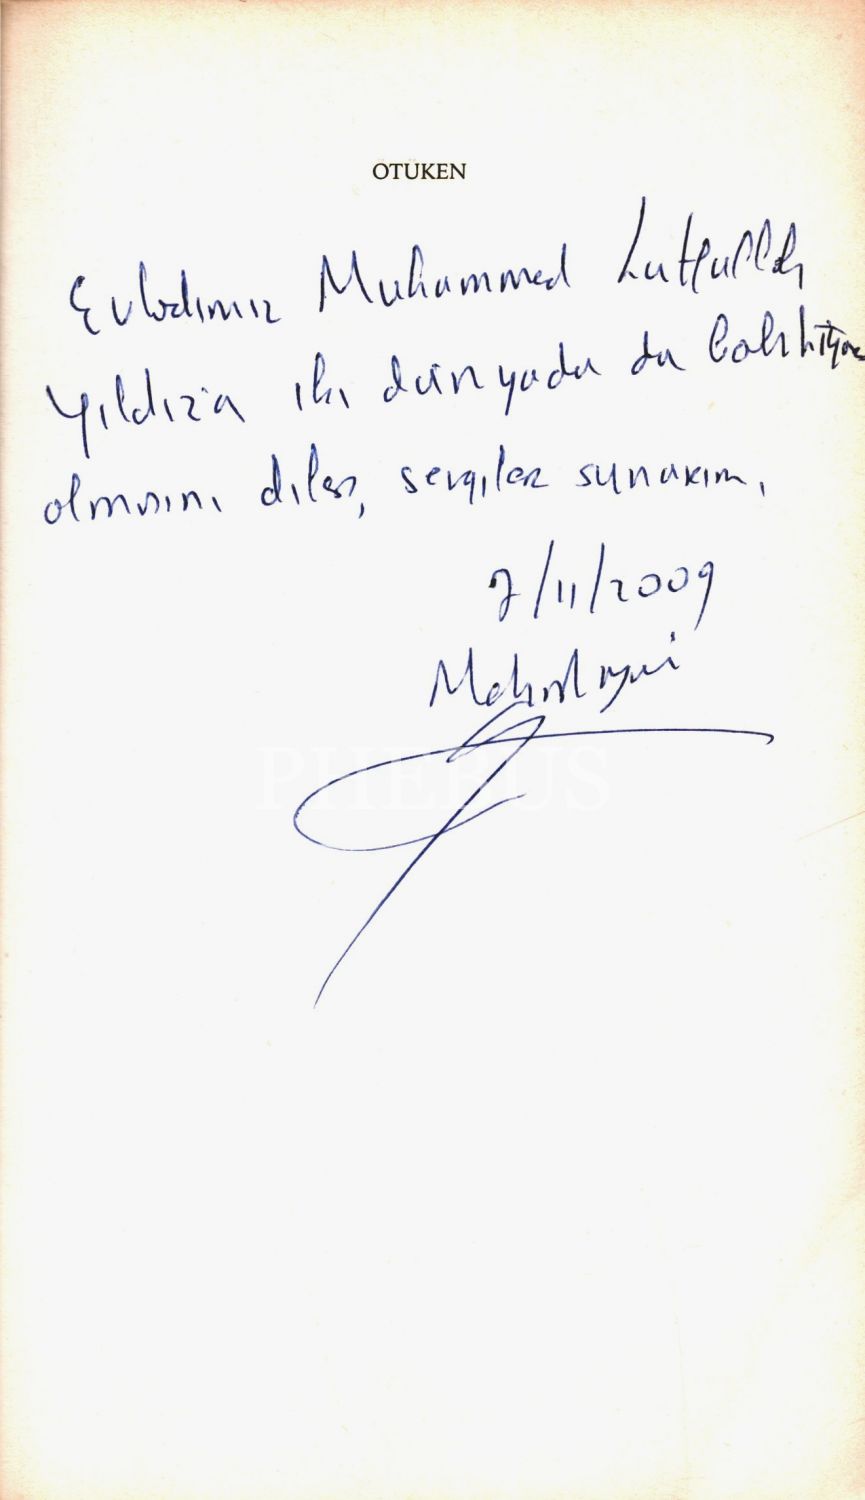 ÖTÜKEN
Evladımız Muhammed Lutfullah
Yıldız'a iki dünyada da bahtiyar
olmasını diler, sevgiler sunarım.
2/11/2009
PHEBUS